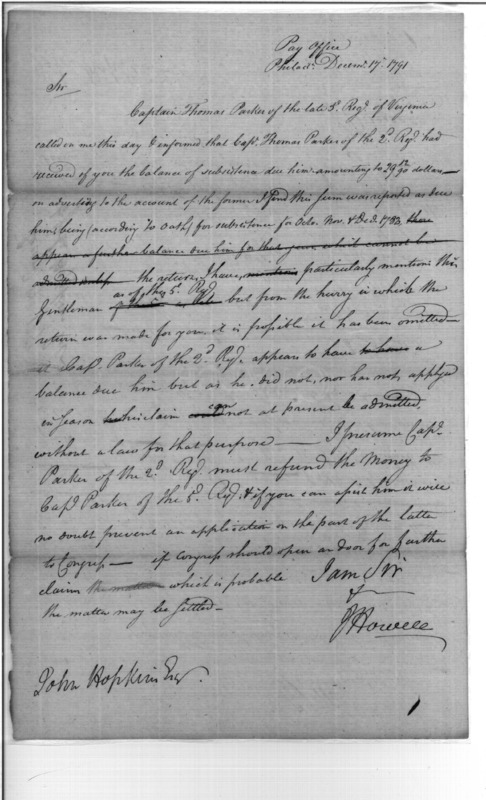 Pay Office
Philad.ᵃ Decem.ʳ 17.ᵗʰ 1791
Sir
Captain Thomas Parker of the late 5.ᵗʰ Reg.ᵗ of Virginia
called on me this day & informed that Cap.ᵗ Thomas Parker of the 2.ᵈ Reg.ᵗ had
received of you the balance of subsistence due him amounting to 29 90 dollars
on adverting to the account of the former I find this sum was reported as due
him, being (according to oath) for subsistence for Octo. Nov. & Dec.ʳ 1782, there
appears a further balance due him for that year which cannot be
admitted unless the return, I have, particularly mentions this
Gentleman as of the 5.ᵗʰ Reg.ᵗ but from the hurry in which the
return was made for you, it is possible it has been omitted—
Cap.ᵗ Parker of the 2.ᵈ Reg.ᵗ appears to have to have a
balance due him but as he did not, nor has not, applyed
in season his claim can not at present be admitted
without a law for that purpose — I presume Cap.ᵗ
Parker of the 2.ᵈ Reg.ᵗ must refund the Money to
Cap.ᵗ Parker of the 5.ᵗʰ Reg.ᵗ & if you can assist him it will
no doubt prevent an application on the part of the latter
to Congress — if Congress should open an door for further
claims the matter which is probable I am Sir
the matter may be settled— &
J Howell
John Hopkins Esq.ʳ